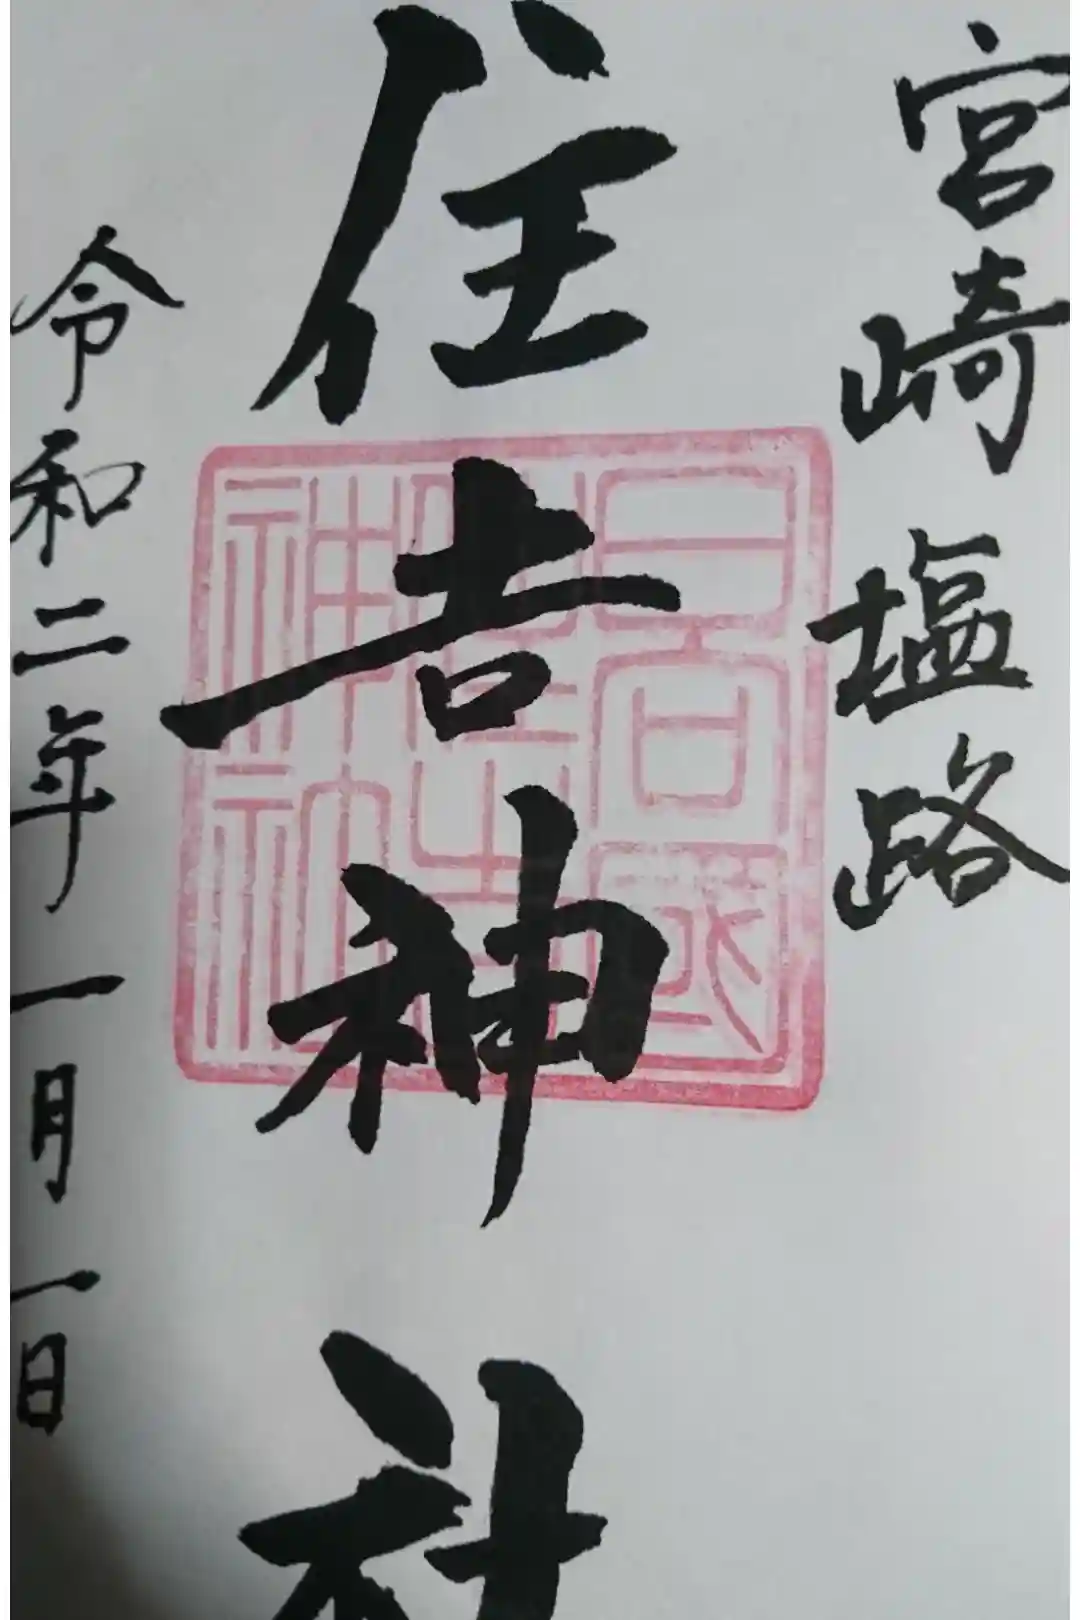 宮崎 塩路
住吉神社
日向國
住吉
神社
令和二年一月一日